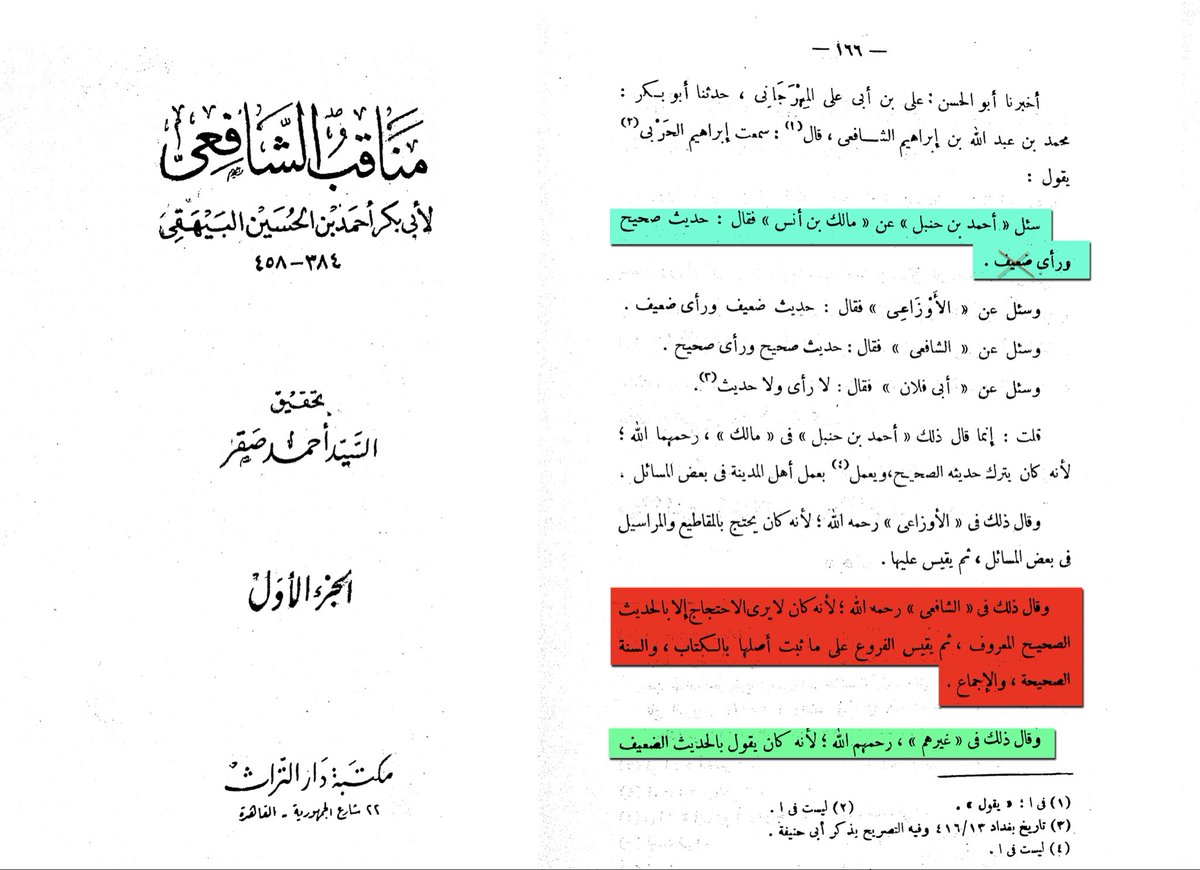 مناقب الشافعى
لأبى بكر أحمد بن الحسين البيهقى
٣٨٤ - ٤٥٨
تحقيق
السيد أحمد صقر
الجزء الأول
مكتبة دار التراث
٢٢ شارع الجمهورية - القاهرة
— ١٦٦ —
أخبرنا أبو الحسن : على بن أبى على المِهْرَجَانِى ، حدثنا أبو بكر :
محمد بن عبد الله بن إبراهيم الشافعى ، قال(١) : سمعت إبراهيم الحَرْبى(٢)
يقول :
سئل « أحمد بن حنبل » عن « مالك بن أنس » فقال : حديث صحيح
ورأى ضعيف .
وسئل عن « الأَوْزَاعِى » فقال : حديث ضعيف ورأى ضعيف .
وسئل عن « الشافعى » فقال : حديث صحيح ورأى صحيح .
وسئل عن « أبى فلان » فقال : لا رأى ولا حديث(٣) .
قلت : إنما قال ذلك « أحمد بن حنبل » فى « مالك » ، رحمهما الله ؛
لأنه كان يترك حديثه الصحيح،ويعمل(٤) بعمل أهل المدينة فى بعض المسائل .
وقال ذلك فى « الأوزاعى » رحمه الله ؛ لأنه كان يحتج بالمقاطيع والمراسيل
فى بعض المسائل ، ثم يقيس عليها .
وقال ذلك فى « الشافعى » رحمه الله ؛ لأنه كان لا يرى الاحتجاج إلا بالحديث
الصحيح المعروف ، ثم يقيس الفروع على ما ثبت أصلها بالكتاب ، والسنة
الصحيحة ، والإجماع .
وقال ذلك فى « غيرهم » ، رحمهم الله ؛ لأنه كان يقول بالحديث الضعيف
(١) فى ا : « يقول » . (٢) ليست فى ا .
(٣) تاريخ بغداد ٤١٦/١٣ وفيه التصريح بذكر أبى حنيفة .
(٤) ليست فى ا .